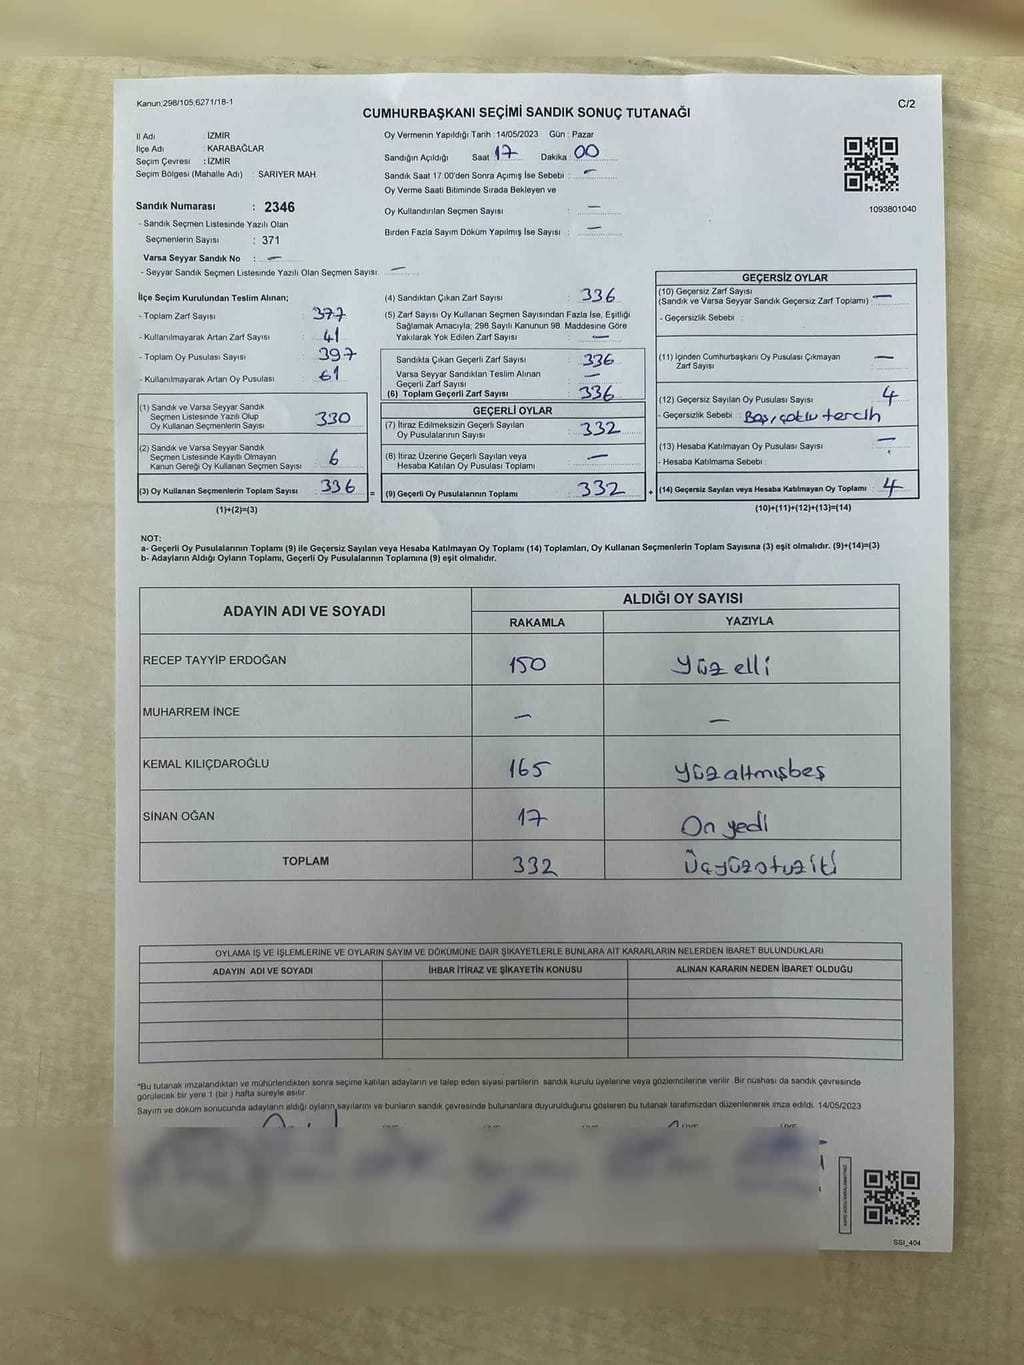 Kanun;298/105;6271/18-1
C/2
CUMHURBAŞKANI SEÇİMİ SANDIK SONUÇ TUTANAĞI
İl Adı : İZMİR
İlçe Adı : KARABAĞLAR
Seçim Çevresi : İZMİR
Seçim Bölgesi (Mahalle Adı) : SARIYER MAH
Sandık Numarası : 2346
- Sandık Seçmen Listesinde Yazılı Olan
Seçmenlerin Sayısı : 371
Varsa Seyyar Sandık No : —
- Seyyar Sandık Seçmen Listesinde Yazılı Olan Seçmen Sayısı : —
Oy Vermenin Yapıldığı Tarih : 14/05/2023 Gün : Pazar
Sandığın Açıldığı Saat : 17 Dakika : 00
Sandık Saat 17.00'den Sonra Açımış İse Sebebi : —
Oy Verme Saati Bitiminde Sırada Bekleyen ve
Oy Kullandırılan Seçmen Sayısı : —
Birden Fazla Sayım Döküm Yapılmış İse Sayısı : —
1093801040
İlçe Seçim Kurulundan Teslim Alınan;
- Toplam Zarf Sayısı : 377
- Kullanılmayarak Artan Zarf Sayısı : 41
- Toplam Oy Pusulası Sayısı : 397
- Kullanılmayarak Artan Oy Pusulası : 61
(1) Sandık ve Varsa Seyyar Sandık
Seçmen Listesinde Yazılı Olup
Oy Kullanan Seçmenlerin Sayısı : 330
(2) Sandık ve Varsa Seyyar Sandık
Seçmen Listesinde Kayıtlı Olmayan
Kanun Gereği Oy Kullanan Seçmen Sayısı : 6
(3) Oy Kullanan Seçmenlerin Toplam Sayısı : 336
(1)+(2)=(3)
(4) Sandıktan Çıkan Zarf Sayısı : 336
(5) Zarf Sayısı Oy Kullanan Seçmen Sayısından Fazla İse, Eşitliği
Sağlamak Amacıyla; 298 Sayılı Kanunun 98. Maddesine Göre
Yakılarak Yok Edilen Zarf Sayısı : —
Sandıkta Çıkan Geçerli Zarf Sayısı : 336
Varsa Seyyar Sandıktan Teslim Alınan
Geçerli Zarf Sayısı : —
(6) Toplam Geçerli Zarf Sayısı : 336
GEÇERLİ OYLAR
(7) İtiraz Edilmeksizin Geçerli Sayılan
Oy Pusulalarının Sayısı : 332
(8) İtiraz Üzerine Geçerli Sayılan veya
Hesaba Katılan Oy Pusulası Toplamı : —
= (9) Geçerli Oy Pusulalarının Toplamı : 332
GEÇERSİZ OYLAR
(10) Geçersiz Zarf Sayısı
(Sandık ve Varsa Seyyar Sandık Geçersiz Zarf Toplamı) : —
- Geçersizlik Sebebi :
(11) İçinden Cumhurbaşkanı Oy Pusulası Çıkmayan
Zarf Sayısı : —
(12) Geçersiz Sayılan Oy Pusulası Sayısı : 4
- Geçersizlik Sebebi : Boş, çoklu tercih
(13) Hesaba Katılmayan Oy Pusulası Sayısı : —
- Hesaba Katılmama Sebebi :
+ (14) Geçersiz Sayılan veya Hesaba Katılmayan Oy Toplamı : 4
(10)+(11)+(12)+(13)=(14)
NOT:
a- Geçerli Oy Pusulalarının Toplamı (9) ile Geçersiz Sayılan veya Hesaba Katılmayan Oy Toplamı (14) Toplamları, Oy Kullanan Seçmenlerin Toplam Sayısına (3) eşit olmalıdır. (9)+(14)=(3)
b- Adayların Aldığı Oyların Toplamı, Geçerli Oy Pusulalarının Toplamına (9) eşit olmalıdır.
ADAYIN ADI VE SOYADI
ALDIĞI OY SAYISI
RAKAMLA YAZIYLA
RECEP TAYYİP ERDOĞAN 150 Yüz elli
MUHARREM İNCE — —
KEMAL KILIÇDAROĞLU 165 yüzaltmışbeş
SİNAN OĞAN 17 On yedi
TOPLAM 332 Üçyüzotuziki
OYLAMA İŞ VE İŞLEMLERİNE VE OYLARIN SAYIM VE DÖKÜMÜNE DAİR ŞİKAYETLERLE BUNLARA AİT KARARLARIN NELERDEN İBARET BULUNDUKLARI
ADAYIN ADI VE SOYADI İHBAR İTİRAZ VE ŞİKAYETİN KONUSU ALINAN KARARIN NEDEN İBARET OLDUĞU
*Bu tutanak imzalandıktan ve mühürlendikten sonra seçime katılan adayların ve talep eden siyasi partilerin sandık kurulu üyelerine veya gözlemcilerine verilir. Bir nüshası da sandık çevresinde
görülecek bir yere 1 (bir) hafta süreyle asılır.
Sayım ve döküm sonucunda adayların aldığı oyların sayılarını ve bunların sandık çevresinde bulunanlara duyurulduğunu gösteren bu tutanak tarafımızdan düzenlenerek imza edildi. 14/05/2023
SSI_404